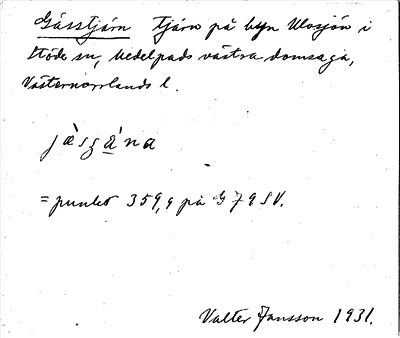 Gåsstjärn Tjärn på byn Ulvsjön i
Stöde sn, Medelpads västra domsaga,
Västernorrlands l.
= punkt 359,9 på G 79 SV.
Valter Jansson 1931.